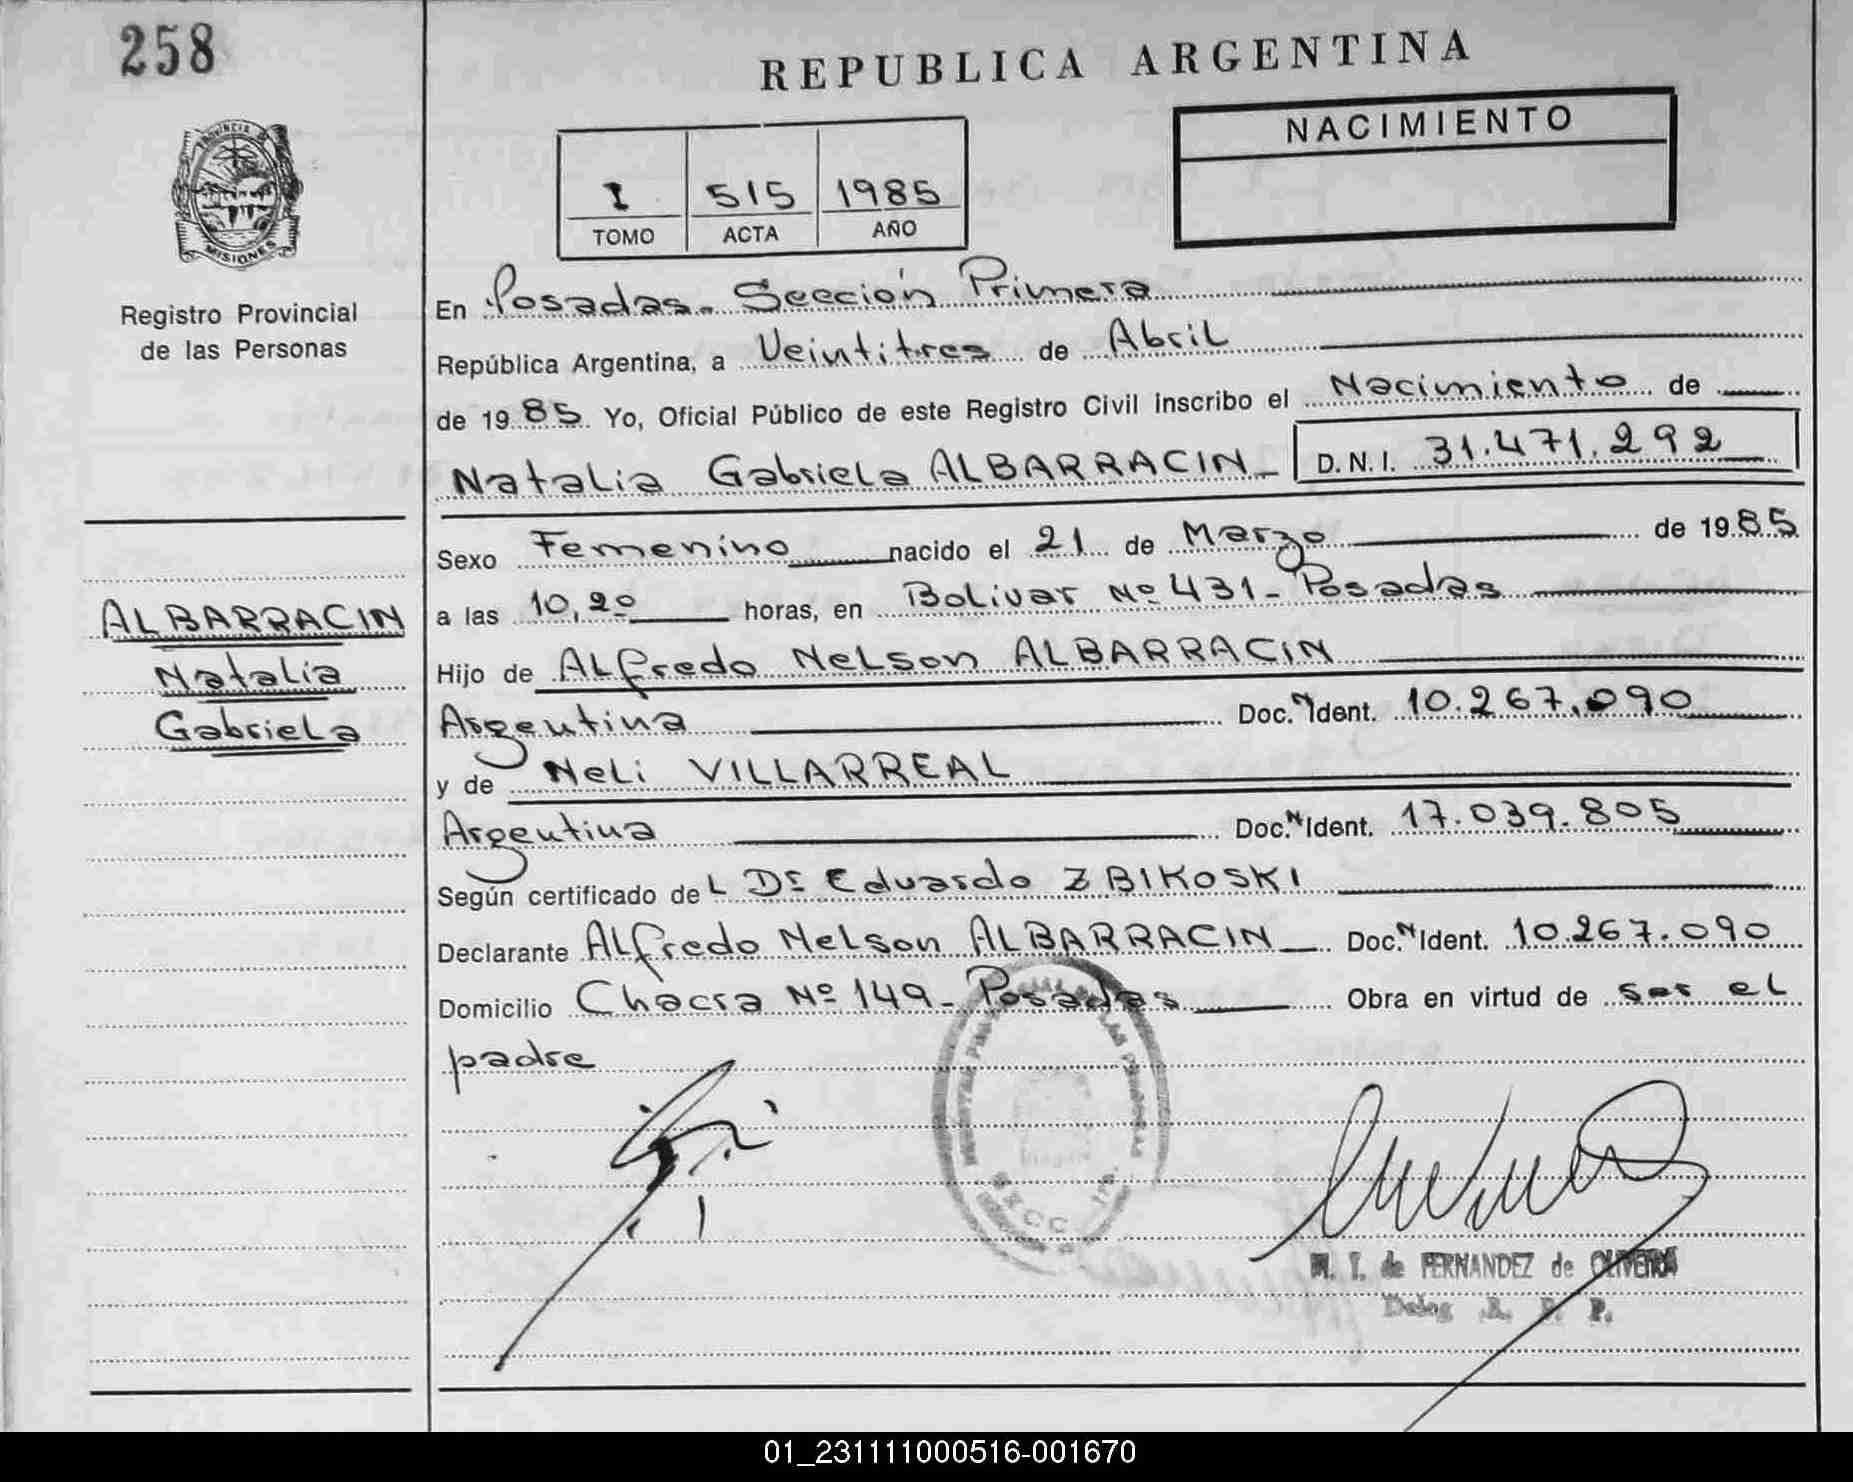 258
REPUBLICA ARGENTINA
NACIMIENTO
PROVINCIA DE
MISIONES
I 515 1985
TOMO ACTA AÑO
Registro Provincial
de las Personas
ALBARRACIN
Natalia
Gabriela
En Posadas. Sección Primera
República Argentina, a Veintitres de Abril
de 1985 Yo, Oficial Público de este Registro Civil inscribo el Nacimiento de
Natalia Gabriela ALBARRACIN D. N. I. 31.471.292
Sexo Femenino nacido el 21 de Marzo de 1985
a las 10,20 horas, en Bolivar Nº 431 - Posadas
Hijo de Alfredo Nelson ALBARRACIN
Argentina Doc. N Ident. 10.267.090
y de Neli VILLARREAL
Argentina Doc. N Ident. 17.039.805
Según certificado del Dr Eduardo ZBIKOSKI
Declarante Alfredo Nelson ALBARRACIN Doc. N Ident. 10.267.090
Domicilio Chacra Nº 149 - Posadas Obra en virtud de ser el
padre
M. T. de FERNANDEZ de OLIVEIRA
Deleg. R. P. P.
01_231111000516-001670